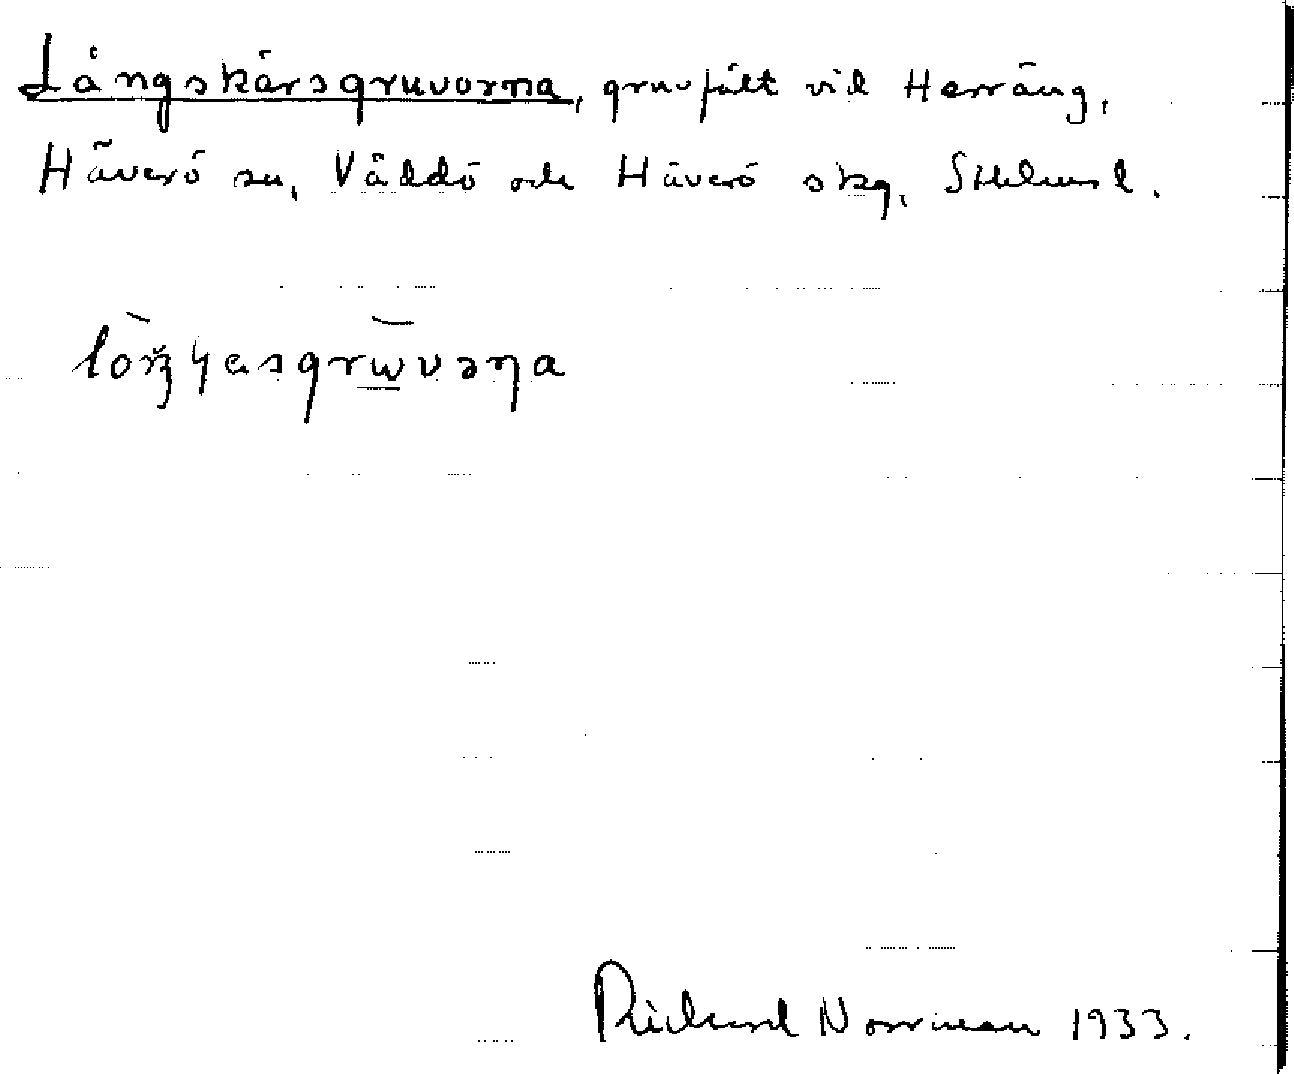 Långskärsgruvorna, gruvfält vid Herräng,
Häverö sn, Väddö och Häverö skg, Sthlms l.
Richard Norrman 1933.